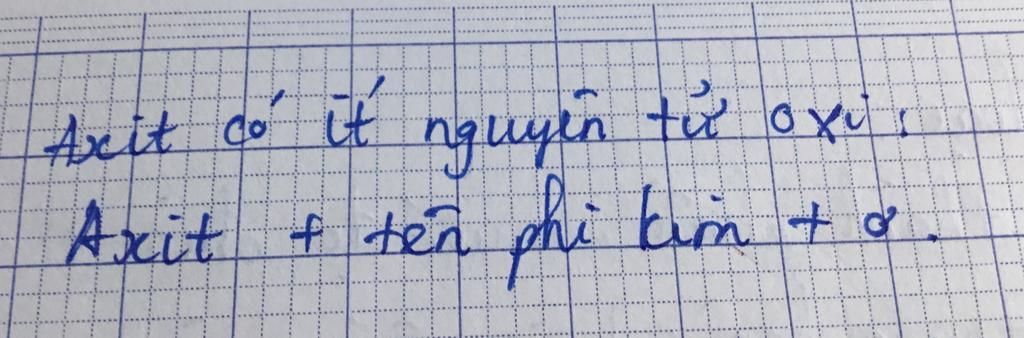 Axit có ít nguyên tử oxi:
Axit + tên phi kim + ơ.